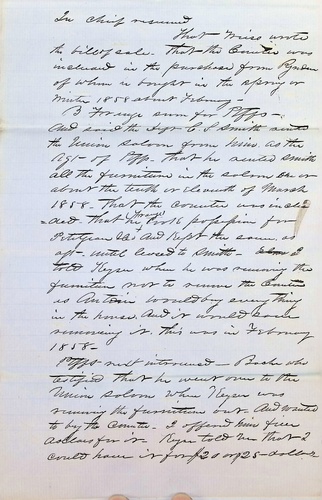 In chief resumed
That Weiss wrote
the bill of sale. That the Counter was
included in the purchase from
of whom he bought in the spring or
winter 1858 about February -
B sworn for Plffs -
And said the Dft C S Smith rented
the Union saloon from him. as the
Agt of Plff. That he rented Smith
all the furniture in the saloon on or
about the tenth or eleventh of March
1858 - That the Counter was inclu
ded that he possession for
And kept the same. as
aft - until leased to Smith - I
told Keyser when he was removing the
furniture not to remove the Counter
as would buy everything
in the house. And it would save
removing it. this was in February
1858 -
Plffs next introduced - who
testified that he went over to the
Union saloon when Keyser was
moving the furniture out. And wanted
to buy the Counter. I offered him five
dollars for it. Keyser told him that I
could have it for $20 or $25 - dollars